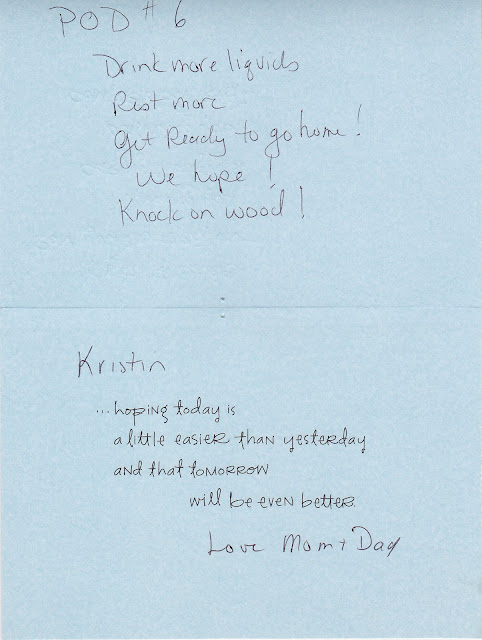 POD # 6
Drink more liquids
Rest more
Get Ready to go home!
We hope!
Knock on wood!
Kristin
...hoping today is
a little easier than yesterday
and that tomorrow
will be even better.
Love Mom + Dad